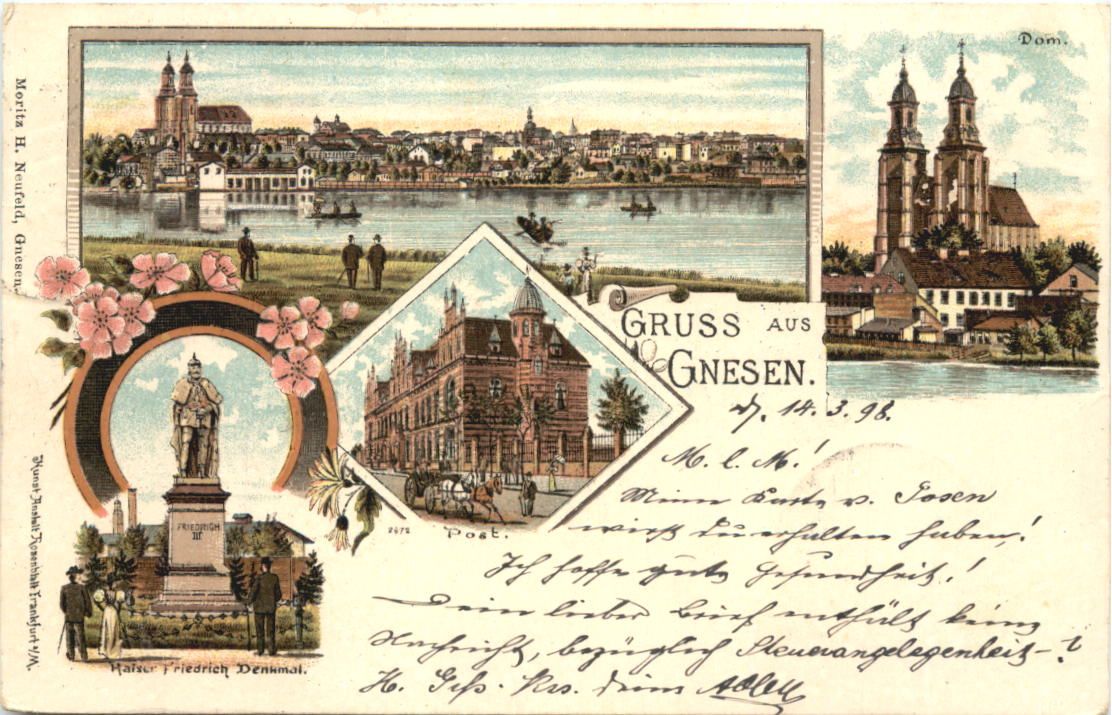 Moritz H. Neufeld, Gnesen.
Dom.
GRUSS AUS
GNESEN.
14.3.98.
M. l. M.!
Meine Karte v. Posen
wirst Du erhalten haben!
Ich hoffe gute Gesundheit!
Dein lieber Brief enthält keine
Nachricht, bezüglich Steuerangelegenheit-?
H. Grß. Krs. Deine
FRIEDRICH
III
2472
Post.
Kaiser Friedrich Denkmal.
Kunst Anstalt Rosenblatt Frankfurt a/M.